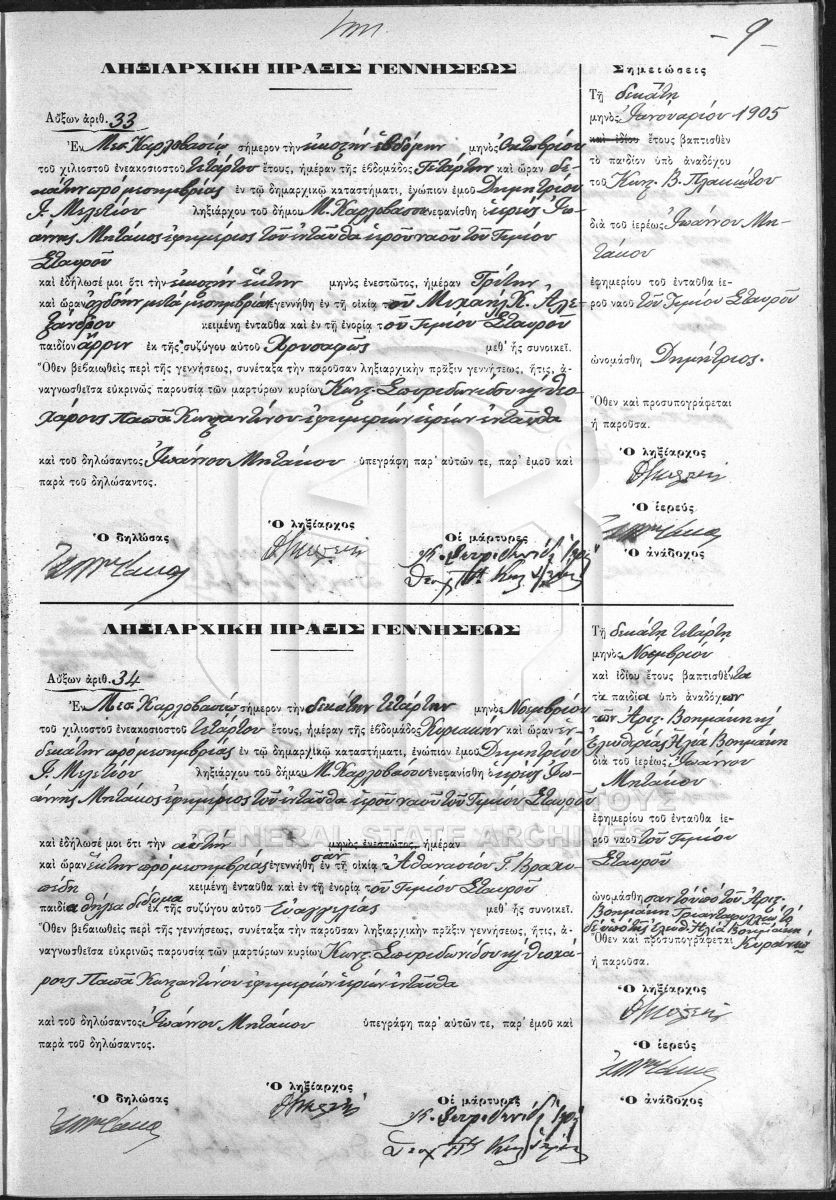 - 9 -
ΛΗΞΙΑΡΧΙΚΗ ΠΡΑΞΙΣ ΓΕΝΝΗΣΕΩΣ
Αὔξων ἀριθ. 33
Ἐν Μεσ. Καρλοβασίῳ σήμερον τὴν εἰκοστὴν ἑβδόμην μηνὸς Ὀκτωβρίου
τοῦ χιλιοστοῦ ἐνεακοσιοστοῦ τετάρτου ἔτους, ἡμέραν τῆς ἑβδομάδος Τετάρτην καὶ ὥραν δε-
κάτην πρὸ μεσημβρίας ἐν τῷ δημαρχικῷ καταστήματι, ἐνώπιον ἐμοῦ Δημητρίου
Ι. Μελετίου ληξιάρχου τοῦ δήμου Μ. Καρλοβασίου ἐνεφανίσθη ὁ ἱερεὺς Ἰω-
άννης Μητάκος ἐφημέριος τοῦ ἐνταῦθα ἱεροῦ ναοῦ τοῦ Τιμίου
Σταυροῦ
καὶ ἐδήλωσέ μοι ὅτι τὴν εἰκοστὴν ἕκτην μηνὸς ἐνεστῶτος, ἡμέραν Τρίτην
καὶ ὥραν ὀγδόην μετὰ μεσημβρίαν ἐγεννήθη ἐν τῇ οἰκίᾳ τοῦ Μιχαὴλ Κ. Ἀλε-
ξάνδρου κειμένῃ ἐνταῦθα καὶ ἐν τῇ ἐνορίᾳ τοῦ Τιμίου Σταυροῦ
παιδίον ἄρρεν ἐκ τῆς συζύγου αὐτοῦ Χρυσαφῶς μεθ' ἧς συνοικεῖ.
Ὅθεν βεβαιωθεὶς περὶ τῆς γεννήσεως, συνέταξα τὴν παροῦσαν ληξιαρχικὴν πρᾶξιν γεννήσεως, ἥτις, ἀ-
ναγνωσθεῖσα εὐκρινῶς παρουσίᾳ τῶν μαρτύρων κυρίων Κωνστ. Σπυριδωνίδου καὶ Θεο-
χάρους Παπᾶ Κωνσταντίνου ἐφημερίων ἱερέων ἐνταῦθα
καὶ τοῦ δηλώσαντος Ἰωάννου Μητάκου ὑπεγράφη παρ' αὐτῶν τε, παρ' ἐμοῦ καὶ
παρὰ τοῦ δηλώσαντος.
Ὁ δηλώσας Ὁ ληξίαρχος Οἱ μάρτυρες
Σημειώσεις
Τῇ δεκάτῃ
μηνὸς Ἰανουαρίου 1905
καὶ ἰδίου ἔτους βαπτισθὲν
τὸ παιδίον ὑπὸ ἀναδόχου
τοῦ Κωνστ. Β. Πλακώτου
διὰ τοῦ ἱερέως Ἰωάννου Μη-
τάκου
ἐφημερίου τοῦ ἐνταῦθα ἱε-
ροῦ ναοῦ τοῦ Τιμίου Σταυροῦ
ὠνομάσθη Δημήτριος.
Ὅθεν καὶ προσυπογράφεται
ἡ παροῦσα.
Ὁ ληξίαρχος
Ὁ ἱερεύς
Ὁ ἀνάδοχος
ΛΗΞΙΑΡΧΙΚΗ ΠΡΑΞΙΣ ΓΕΝΝΗΣΕΩΣ
Αὔξων ἀριθ. 34
Ἐν Μεσ. Καρλοβασίῳ σήμερον τὴν δεκάτην τετάρτην μηνὸς Νοεμβρίου
τοῦ χιλιοστοῦ ἐνεακοσιοστοῦ τετάρτου ἔτους, ἡμέραν τῆς ἑβδομάδος Κυριακὴν καὶ ὥραν ἑν-
δεκάτην πρὸ μεσημβρίας ἐν τῷ δημαρχικῷ καταστήματι, ἐνώπιον ἐμοῦ Δημητρίου
Ι. Μελετίου ληξιάρχου τοῦ δήμου Μ. Καρλοβασίου ἐνεφανίσθη ὁ ἱερεὺς Ἰω-
άννης Μητάκος ἐφημέριος τοῦ ἐνταῦθα ἱεροῦ ναοῦ τοῦ Τιμίου Σταυροῦ
ΓΕΝΙΚΑ ΑΡΧΕΙΑ ΤΟΥ ΚΡΑΤΟΥΣ
GENERAL STATE ARCHIVES
καὶ ἐδήλωσέ μοι ὅτι τὴν μηνὸς ἐνεστῶτος, ἡμέραν
καὶ ὥραν ἕκτην πρὸ μεσημβρίας ἐγεννήθησαν ἐν τῇ οἰκίᾳ τοῦ Ἀθανασίου Γ. Βραχω-
πίδη κειμένῃ ἐνταῦθα καὶ ἐν τῇ ἐνορίᾳ τοῦ Τιμίου Σταυροῦ
παιδία θήλεα δίδυμα ἐκ τῆς συζύγου αὐτοῦ Εὐαγγελίας μεθ' ἧς συνοικεῖ.
Ὅθεν βεβαιωθεὶς περὶ τῆς γεννήσεως, συνέταξα τὴν παροῦσαν ληξιαρχικὴν πρᾶξιν γεννήσεως, ἥτις, ἀ-
ναγνωσθεῖσα εὐκρινῶς παρουσίᾳ τῶν μαρτύρων κυρίων Κωνστ. Σπυριδωνίδου καὶ Θεοχά-
ρους Παπᾶ Κωνσταντίνου ἐφημερίων ἱερέων ἐνταῦθα
καὶ τοῦ δηλώσαντος Ἰωάννου Μητάκου ὑπεγράφη παρ' αὐτῶν τε, παρ' ἐμοῦ καὶ
παρὰ τοῦ δηλώσαντος.
Ὁ δηλώσας Ὁ ληξίαρχος Οἱ μάρτυρες
Τῇ δεκάτῃ τετάρτῃ
μηνὸς Νοεμβρίου
καὶ ἰδίου ἔτους βαπτισθέντα
τὰ παιδία ὑπὸ ἀναδόχων
τῶν Ἀριστ. Βουρλάκη καὶ
Ἐλευθερίας Ἠλία
διὰ τοῦ ἱερέως Ἰωάννου
Μητάκου
ἐφημερίου τοῦ ἐνταῦθα ἱε-
ροῦ ναοῦ τοῦ Τιμίου
Σταυροῦ
ὠνομάσθησαν τοῦ ὑπὸ τοῦ Ἀριστ.
Ὅθεν καὶ προσυπογράφεται
ἡ παροῦσα.
Ὁ ληξίαρχος
Ὁ ἱερεύς
Ὁ ἀνάδοχος